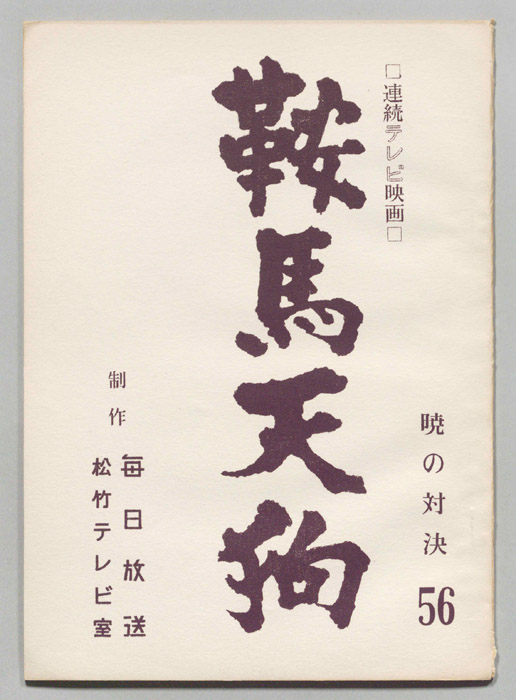 □連続テレビ映画□
鞍馬天狗
暁の対決
56
制作
毎日放送
松竹テレビ室